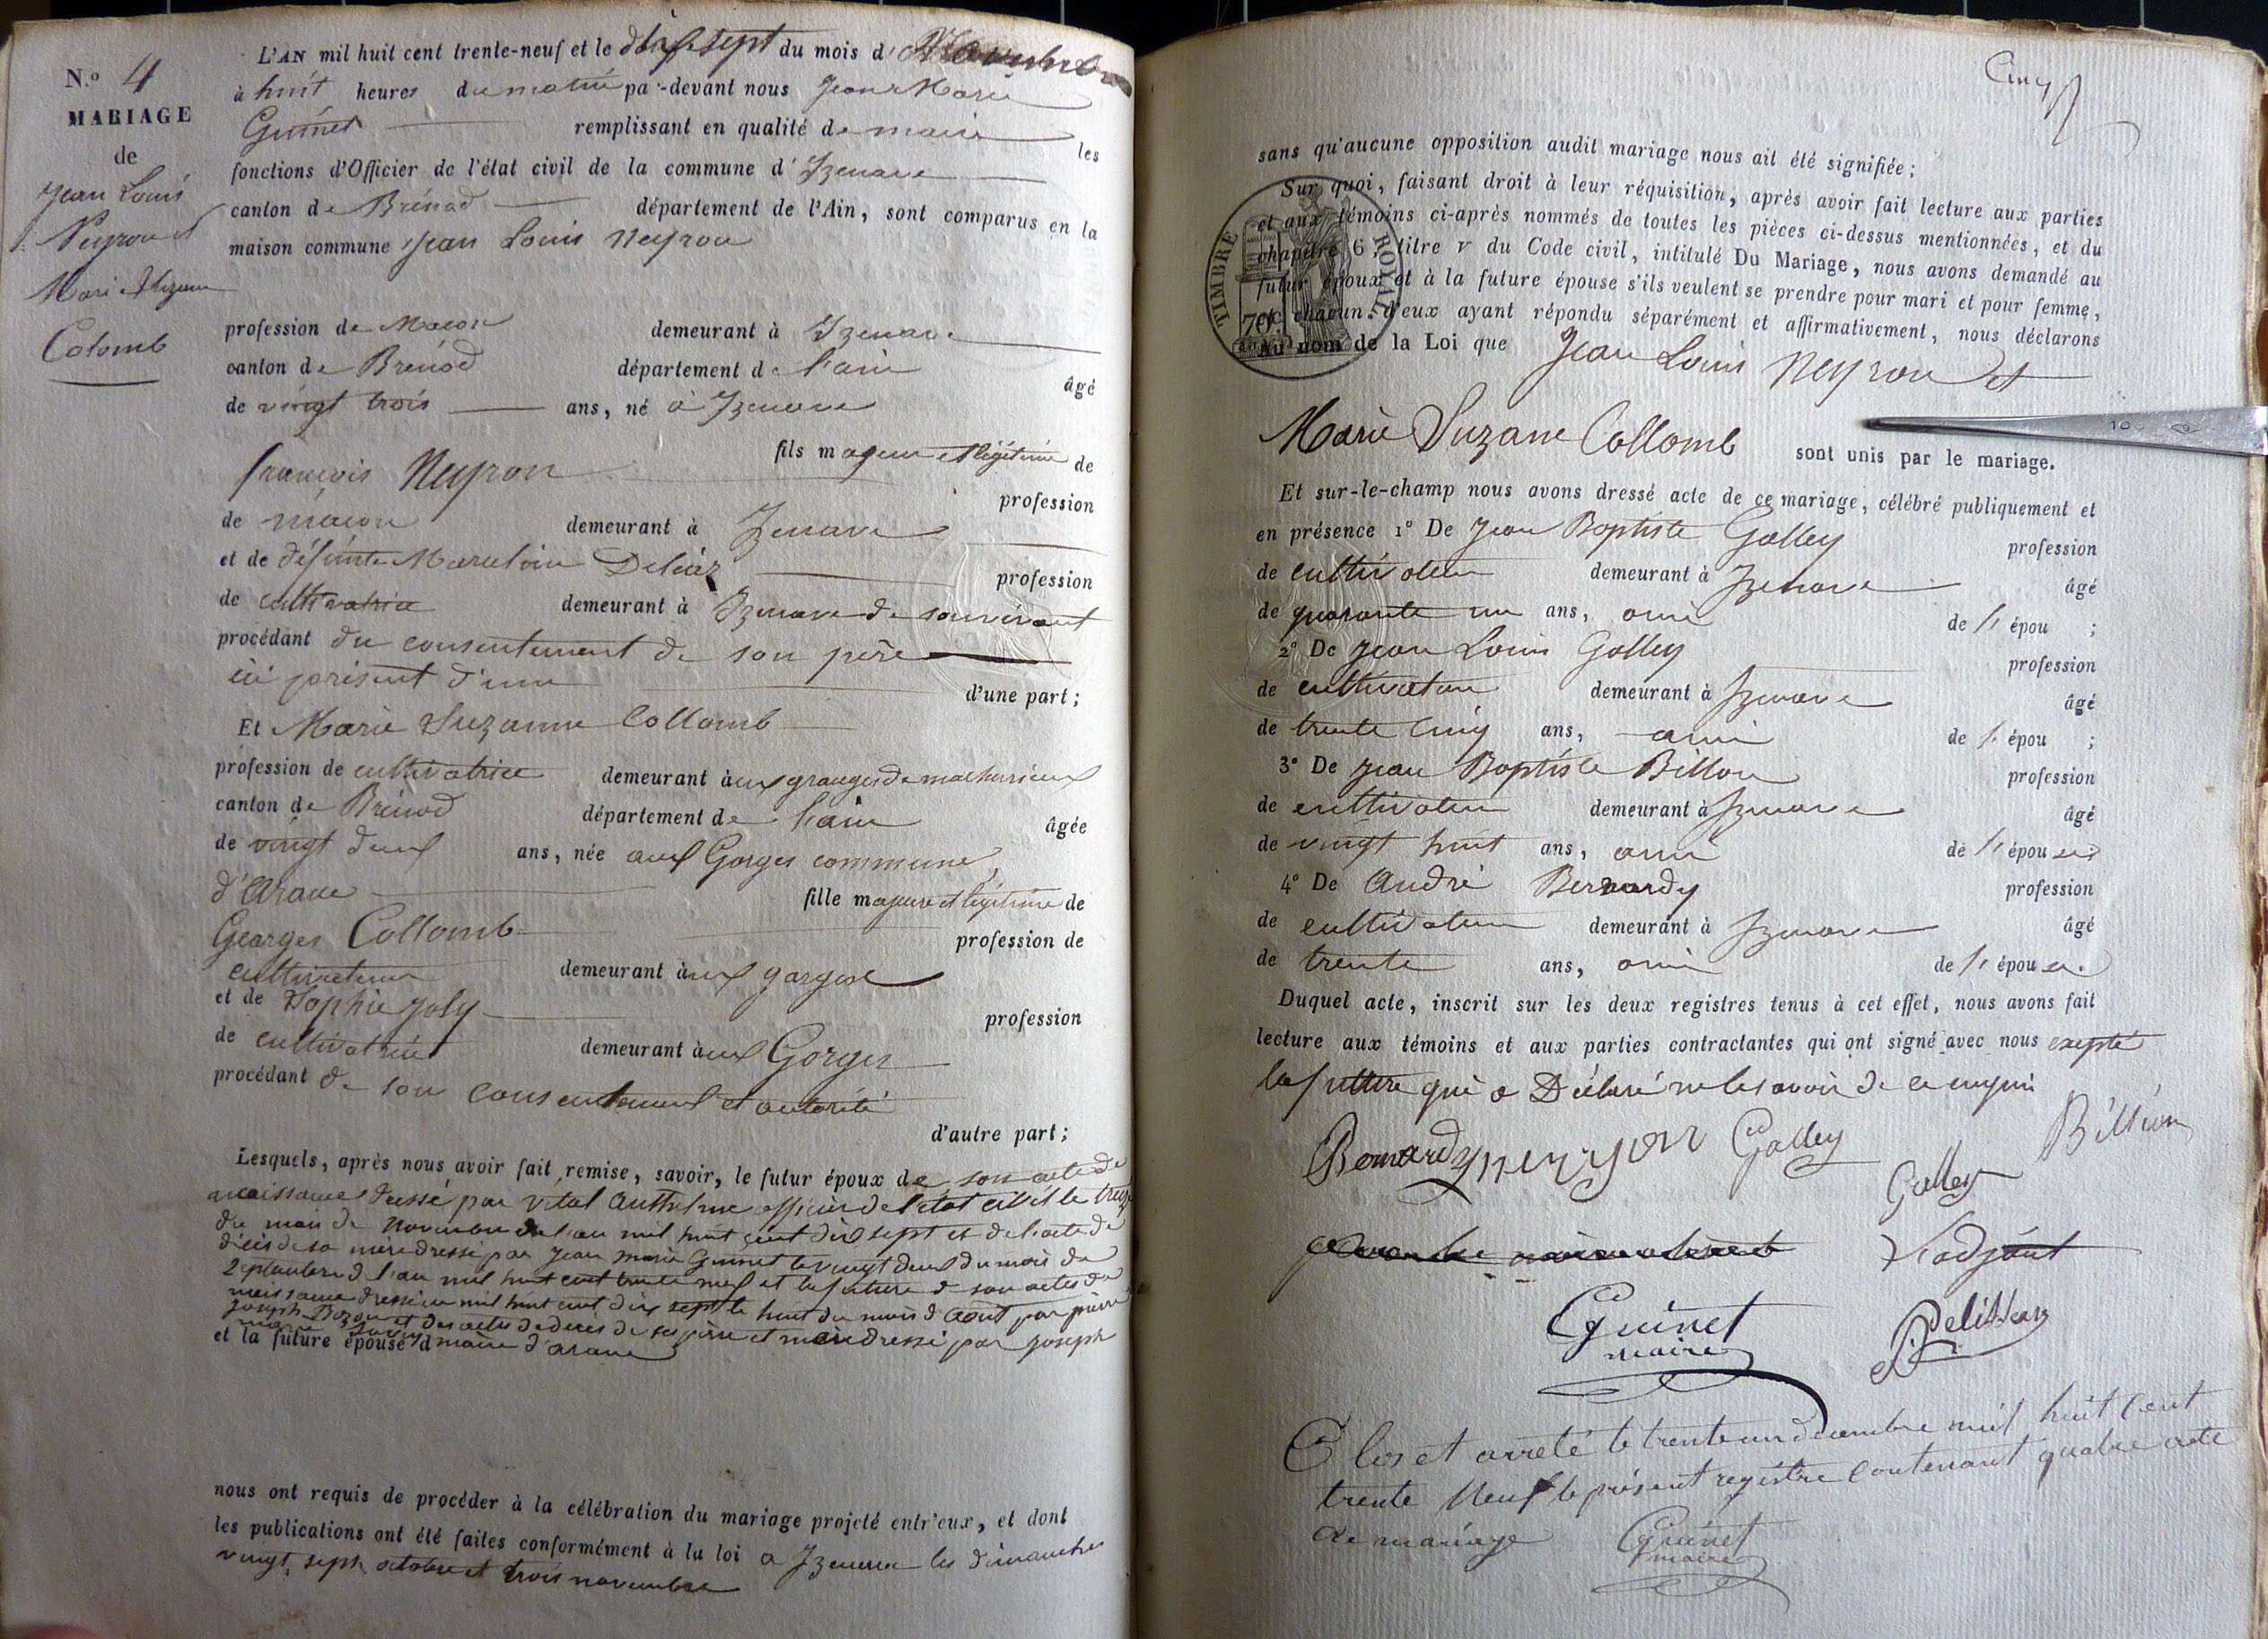 N.º 4
MARIAGE
de
Jean Louis
Neyron et
Marie Suzanne
Colomb
L'AN mil huit cent trente-neuf et le dix sept du mois d novembre
à huit heures du matin par-devant nous Jean Marie
Guinet remplissant en qualité de maire les
fonctions d'Officier de l'état civil de la commune d'Izenave
canton de Brénod département de l'Ain, sont comparus en la
maison commune Jean Louis Neyron
profession de Macon demeurant à Izenave
canton de Brénod département de l'ain âgé
de vingt trois ans, né à Izenave
fils majeur et légitime de
françois Neyron profession
de maçon demeurant à Izenave
et de défunte profession
de cultivatrice demeurant à Izenave de son vivant
procédant du consentement de son père
ici présent d'une d'une part;
Et Marie Suzanne Collomb
profession de cultivatrice demeurant aux granges de
canton de Brénod département de l'ain âgée
de vingt deux ans, née aux Gorges commune
d'Arane fille majeure et légitime de
Georges Collomb profession de
cultivateur demeurant à aux gorges
et de Sophie Joly profession
de cultivatrice demeurant à aux Gorges
procédant de son consentement et autorité
d'autre part;
Lesquels, après nous avoir fait remise, savoir, le futur époux de son acte de
naissance dressé par Vital Anthelme officier de l'état civil le treize
du mois de novembre de l'an mil huit cent dix sept et de l'acte de
décès de sa mère dressé par Jean Marie Guinet le vingt deux du mois de
Septembre d l'an mil huit cent trente neuf et la future d son actes de
naissance dressé en mil huit cent dix sept le huit du mois d'août par pierre
joseph et des actes de deces de ses père et mère dressé par joseph
marie
et la future épouse d maire d'arane
nous ont requis de procéder à la célébration du mariage projeté entr'eux, et dont
les publications ont été faites conformément à la loi a Izenave les dimanches
vingt sept octobre et trois novembre
Cinq
sans qu'aucune opposition audit mariage nous ait été signifiée;
Sur quoi, faisant droit à leur réquisition, après avoir fait lecture aux parties
et aux témoins ci-après nommés de toutes les pièces ci-dessus mentionnées, et du
chapitre 6, titre v du Code civil, intitulé Du Mariage, nous avons demandé au
futur époux et à la future épouse s'ils veulent se prendre pour mari et pour femme,
et chacun d'eux ayant répondu séparément et affirmativement, nous déclarons
Au nom de la Loi que Jean Louis Neyron et
TIMBRE ROYAL
70
Marie Suzane Collomb sont unis par le mariage.
10
Et sur-le-champ nous avons dressé acte de ce mariage, célébré publiquement et
en présence 1º De Jean Baptiste Galley profession
de cultivateur demeurant à Izenave âgé
de quarante un ans, ami de l' épou ;
2º De Jean Louis Galley profession
de cultivateur demeurant à Izenave âgé
de trente cinq ans, ami de l' épou ;
3º De Jean Baptiste Billon profession
de cultivateur demeurant à Izenave âgé
de vingt huit ans, ami de l' épouse
4º De André Bernardy profession
de cultivateur demeurant à Izenave âgé
de trente ans, ami de l' épouse.
Duquel acte, inscrit sur les deux registres tenus à cet effet, nous avons fait
lecture aux témoins et aux parties contractantes qui ont signé avec nous excepté
la future qui a Déclaré ne le savoir de ce enquis
Bernardy neyron Galley Billion
Galley
l'adjoint
Guinet
maire
Pelisson
Clos et arreté le trente un décembre mil huit Cent
trente Neuf le présent registre Contenant quatre acte
de mariage Guinet
maire